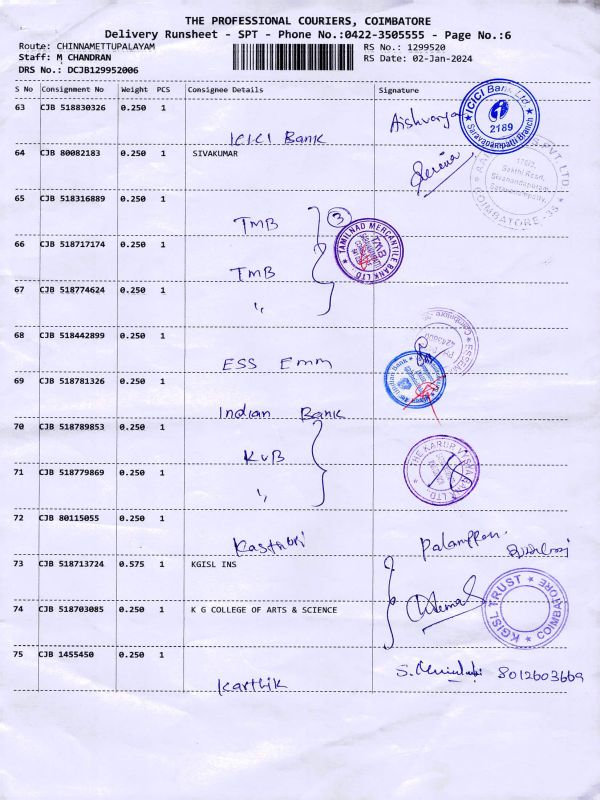 THE PROFESSIONAL COURIERS, COIMBATORE
Delivery Runsheet - SPT - Phone No.:0422-3505555 - Page No.:6
Route: CHINNAMETTUPALAYAM
RS No.: 1299520
Staff: M CHANDRAN
RS Date: 02-Jan-2024
DRS No.: DCJB129952006
S No Consignment No Weight PCS Consignee Details Signature
63 CJB 518830326 0.250 1
ICICI Bank
Aishvarya
ICICI Bank Ltd.
2189
Saravanampatti Branch
64 CJB 80082183 0.250 1 SIVAKUMAR
PVT LTD.
Sakthi Road,
COIMBATORE - 35
65 CJB 518316889 0.250 1
TMB
3
TAMILNAD MERCANTILE BANK LTD.
TMB
66 CJB 518717174 0.250 1
TMB
67 CJB 518774624 0.250 1
"
68 CJB 518442899 0.250 1
ESS Emm
69 CJB 518781326 0.250 1
Indian Bank
Indian Bank
70 CJB 518789853 0.250 1
KVB
THE KARUR VYSYA BANK LTD.
71 CJB 518779869 0.250 1
"
72 CJB 80115055 0.250 1
Kasthuri
73 CJB 518713724 0.575 1 KGISL INS
KGISL TRUST
COIMBATORE
74 CJB 518703085 0.250 1 K G COLLEGE OF ARTS & SCIENCE
75 CJB 1455450 0.250 1
Karthik
S. 8012603669